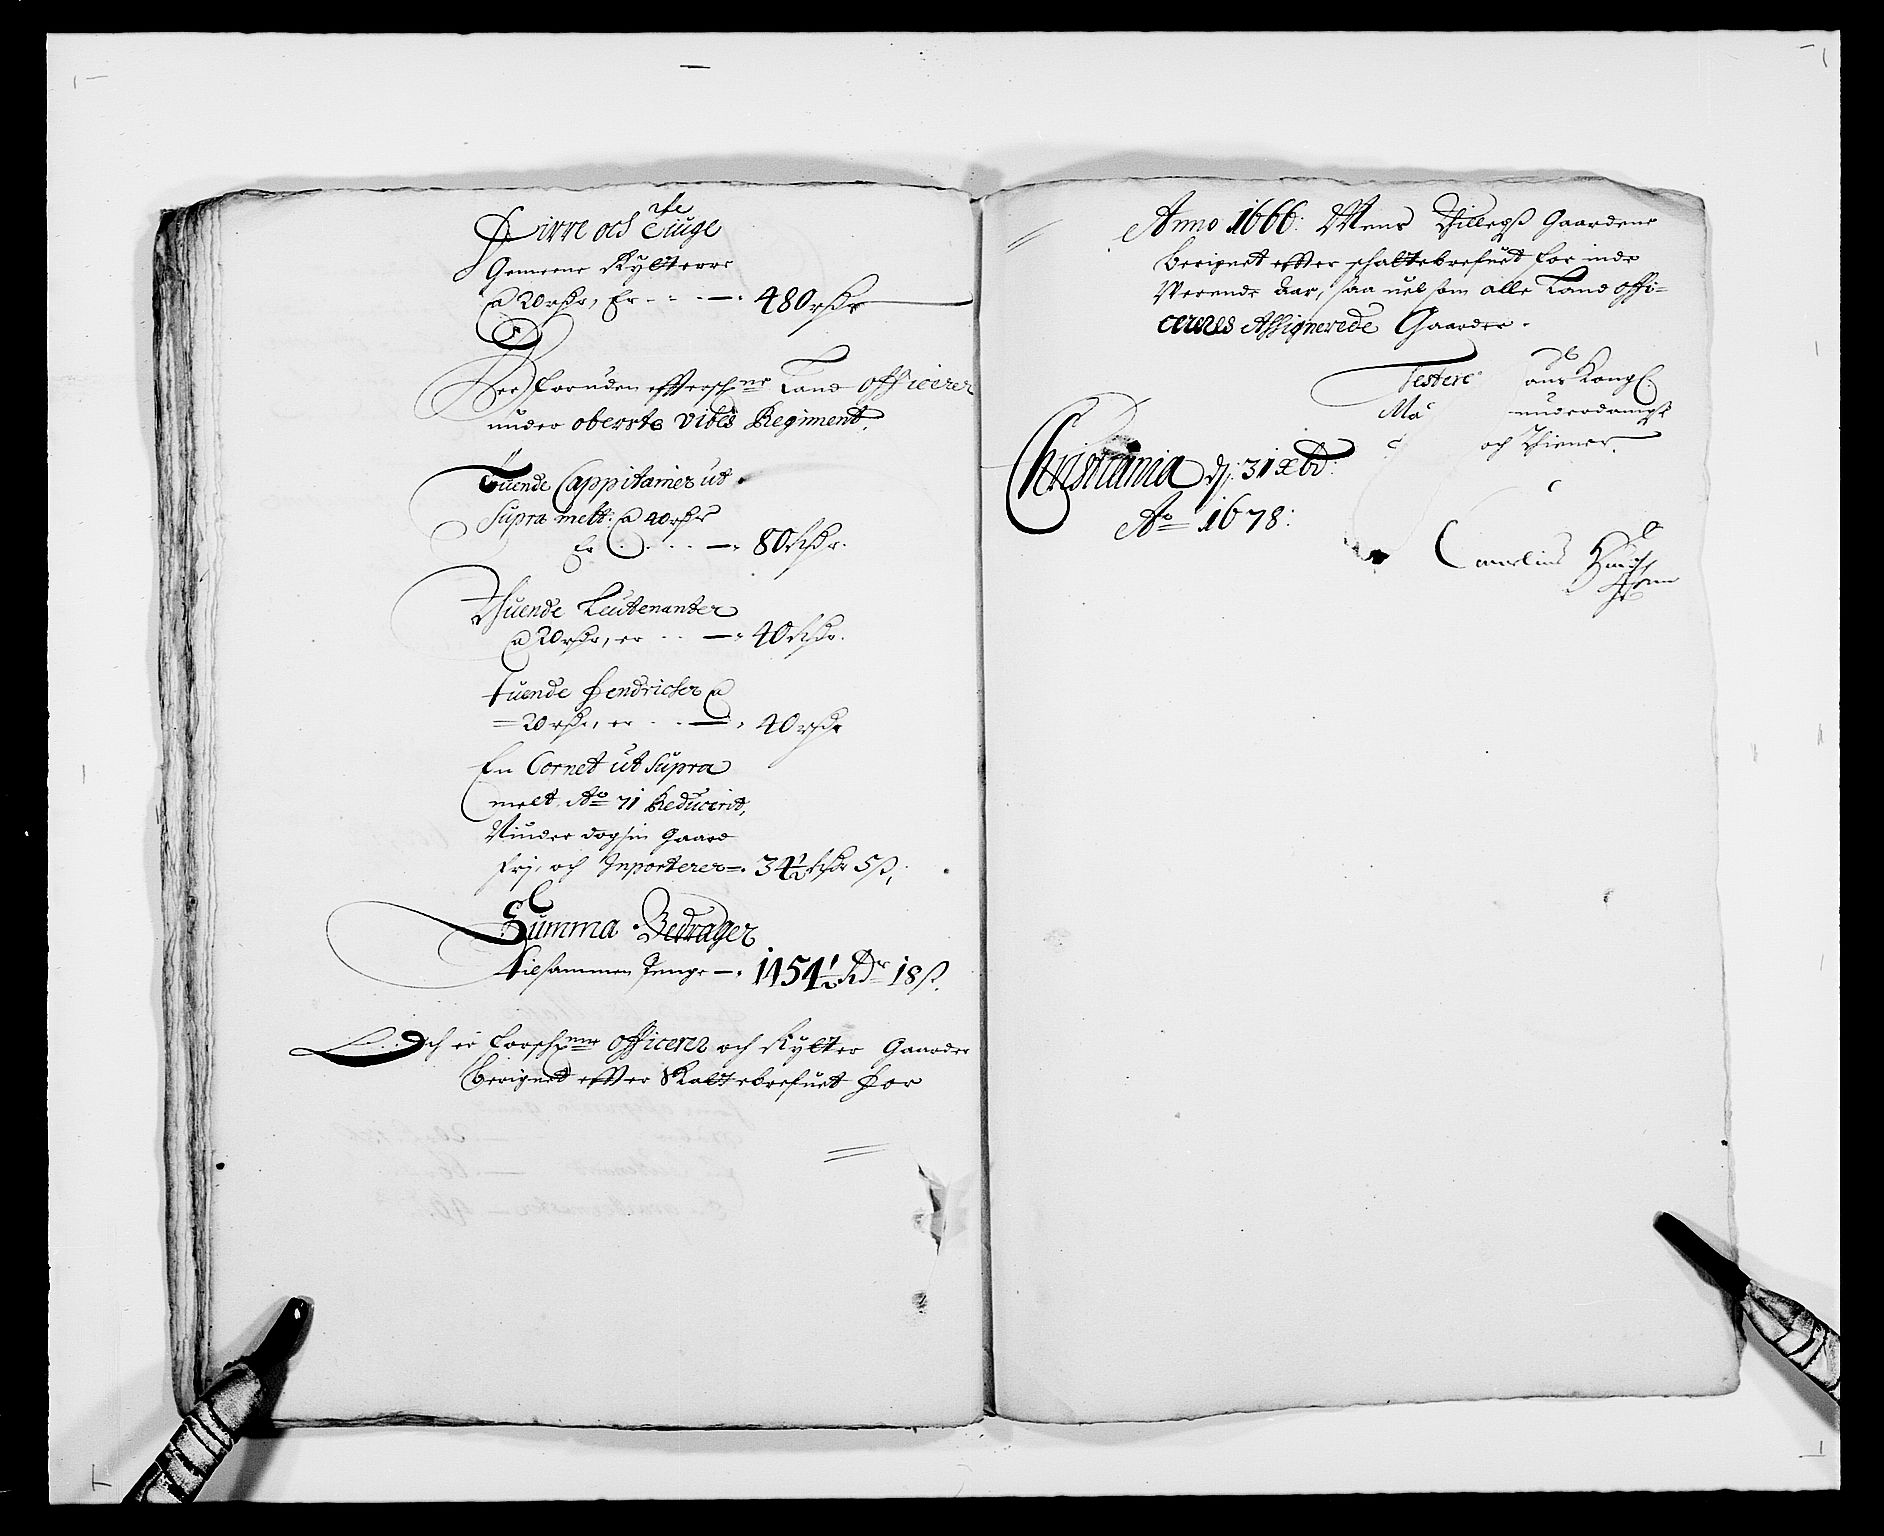 Firre och Tiuge
Gemeene Rytterre
a 20 rdr, Er - - - 480 rdr
Der foruden effterschne Land officerer
under oberste Vibes Regiment,
Tuende Cappitainer ut
Supra melt: a 40 rdr
Er . . . . 80 Rdr.
Thuende Leutenanter
a 20 rdr, er . . 40 Rdr.
tuende Fendricher a
20 rdr, er . . 40 rdr
En Cornet ut Supra
melt, Ao 71 Reducerit,
Niuder dog sin Gaard
frj, och Inporterer 34½ Rdr 5 ß,
Summa Bedrager
tilsammen Penge 1454½ Rdr 18 ß.
Och er forschne officerer och Rytter Gaarder
Berignet effter Skattebrefuet for
Anno 1666: Mens Gaardene
Berignet effter schattebrefuet for inde
Verende Aar, saa uel som alle Land offi-
cereres Assignerede Gaarder.
Testerer
Kongl.
Ma underdanigst
och Thiener
Christiania dj: 31 xbr:
Ao 1678: